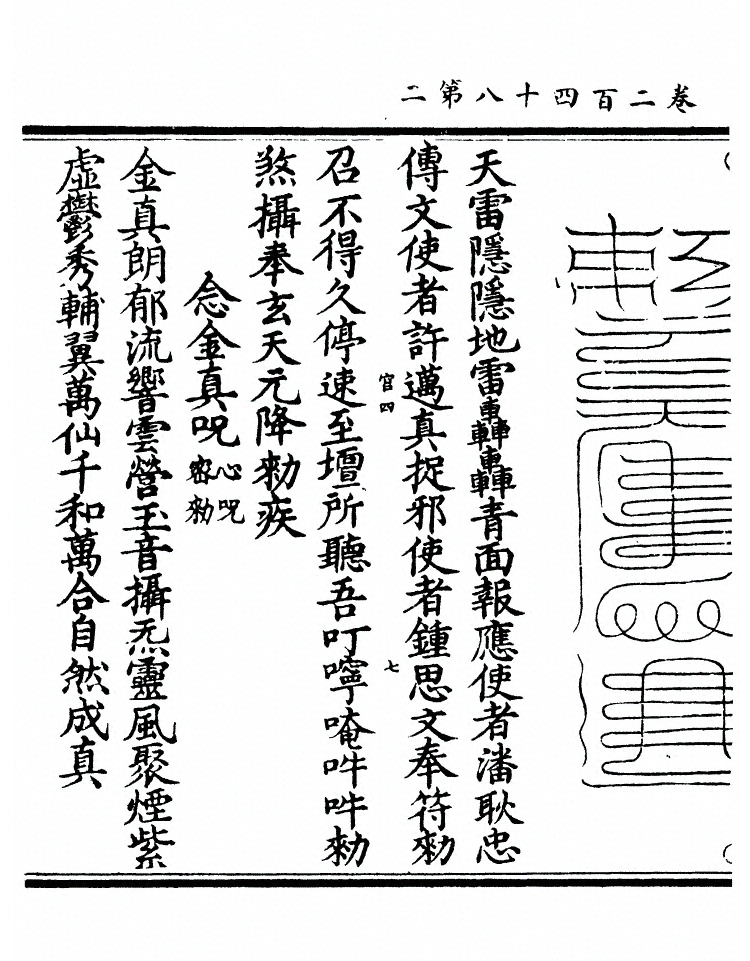 卷二百四十八第二
天雷隱隱地雷轟轟青面報應使者潘耿忠
傳文使者許邁真捉邪使者鍾思文奉符勑
官四
七
召不得久停速至壇所聽吾叮嚀唵吽吽勑
煞攝奉玄天元降勑疾
念金真呪
心呪
密勑
金真朗郁流響雲營玉音攝炁靈風聚煙紫
虛鬱秀輔翼萬仙千和萬合自然成真